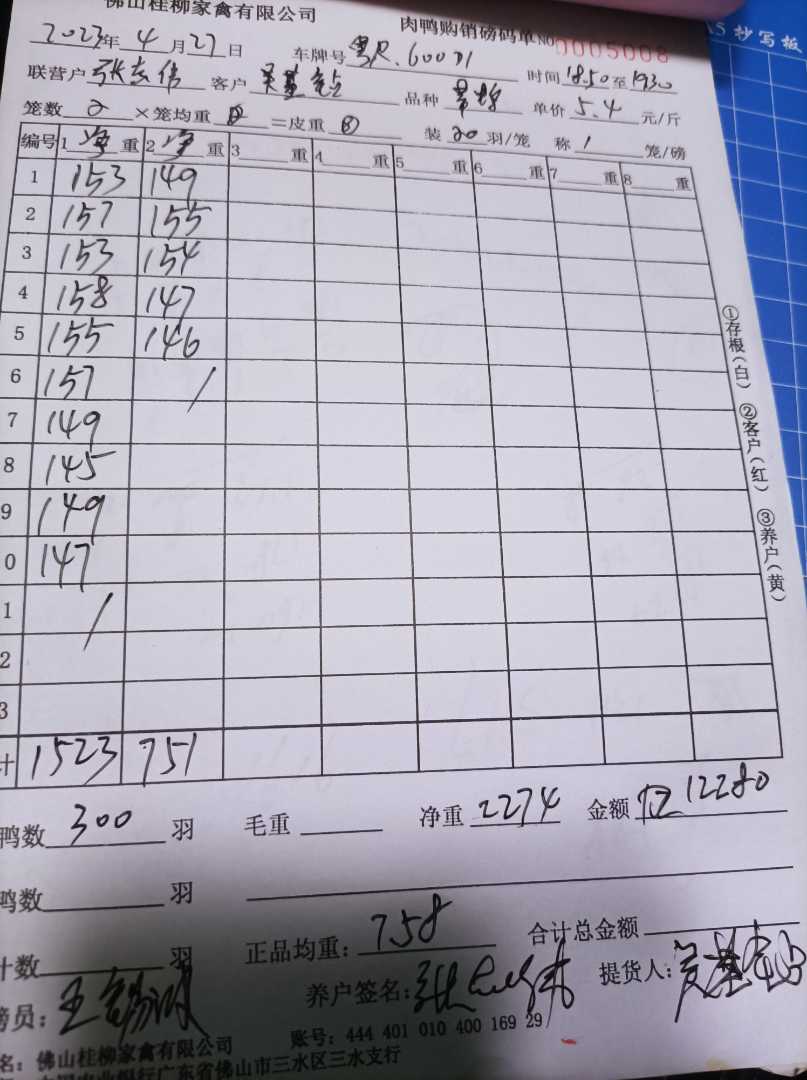 佛山桂柳家禽有限公司
肉鸭购销磅码单 NO 0005008
A5 抄写板
2023年 4 月 27 日 车牌号 粤R.600D1 时间 18.50 至 1930
联营户 张志伟 客户 品种 单价 5.4 元/斤
笼数 2 ×笼均重 =皮重 装 20 羽/笼 称 1 笼/磅
编号 1 净 重 2 净 重 3 重 4 重 5 重 6 重 7 重 8 重
1 153 149
2 157 155
3 153 154
4 158 147
5 155 146
6 157 /
7 149
8 145
9 149
0 147
1 /
2
3
计 1523 751
①存根(白) ②客户(红) ③养户(黄)
鸭数 300 羽 毛重 净重 2274 金额 12280
鸭数 羽
计数 羽 正品均重: 758 合计总金额
磅员: 王 养户签名: 提货人:
名: 佛山桂柳家禽有限公司 账号: 444 401 010 400 169 29
中国农业银行广东省佛山市三水区三水支行